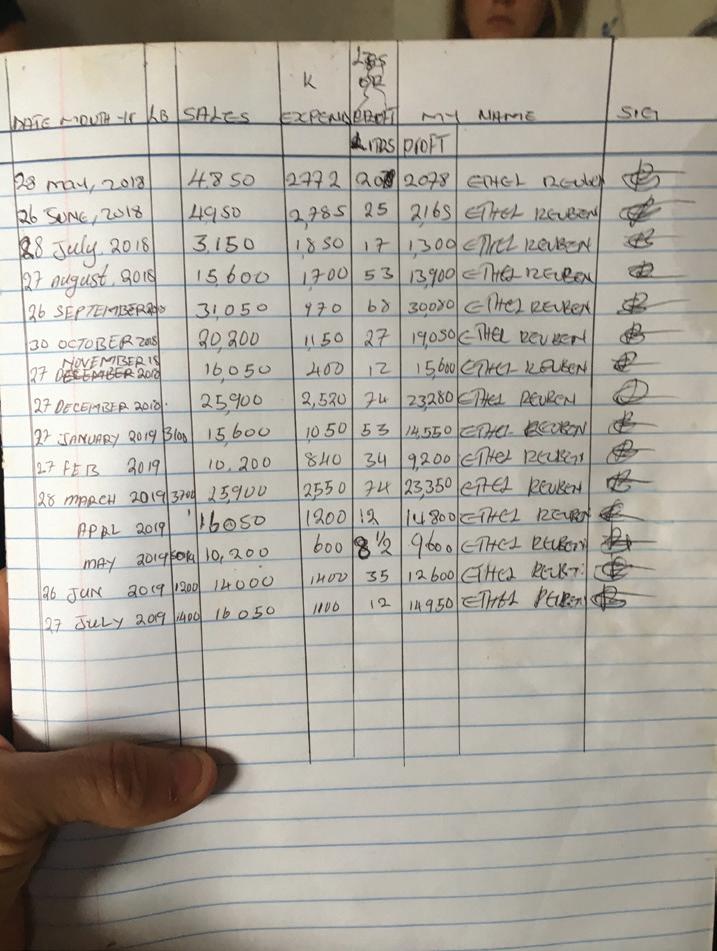 K LBS OR
DATE MOUTH-YR LB SALES EXPEND PROFT MY NAME SIG
LITRS PROFT
28 may, 2018 4850 2772 20 2078 ETHEL REUBEN
26 JUNE, 2018 4950 2,785 25 2165 ETHEL REUBEN
28 July, 2018 3,150 1,850 17 1,300 ETHEL REUBEN
27 august, 2018 15,600 1,700 53 13,900 ETHEL REUBEN
26 SEPTEMBER 31,050 970 68 30080 ETHEL REUBEN
30 OCTOBER 2018 20,200 1,150 27 19,050 ETHEL REUBEN
NOVEMBER 18
27 DECEMBER 2018 16,050 400 12 15,600 ETHEL REUBEN
27 DECEMBER 2018. 25,900 2,520 74 23,280 ETHEL REUBEN
27 JANUARY 2019 3100 15,600 1050 53 14,550 ETHEL REUBEN
27 FEB 2019 10,200 840 34 9,200 ETHEL REUBEN
28 MARCH 2019 3700 25,900 2550 74 23,350 ETHEL REUBEN
APRL 2019 16050 1200 12 14800 ETHEL REUBEN
MAY 2019 10,200 600 8 1/2 9600 ETHEL REUBEN
26 JUN 2019 1200 14000 1400 35 12600 ETHEL
27 JULY 2019 1400 16050 1100 12 14950 ETHEL REUBEN